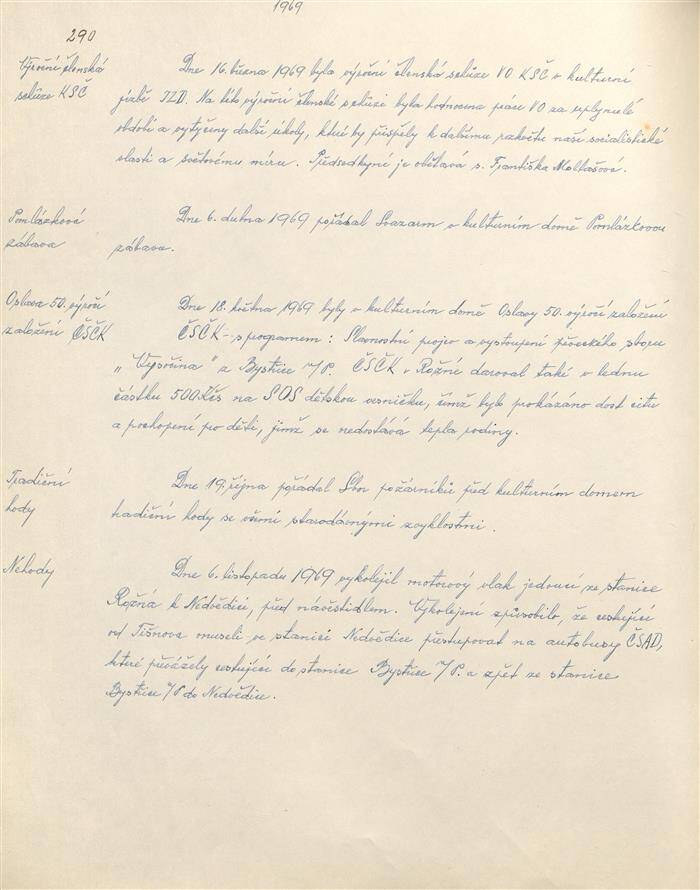 1969
290
Výroční členská
schůze KSČ
Dne 16. března 1969 byla výroční členská schůze VO KSČ v kulturní
jizbě JZD. Na této výroční členské schůzi byla hodnocena práce VO za uplynulé
období a vytyčeny další úkoly, které by přispěly k dalšímu rozkvětu naší socialistické
vlasti a světovému míru. Předsedkyní je obětavá s. Františka Moltašová.
Pomlázková
zábava
Dne 6. dubna 1969 pořádal Svazarm v kulturním domě Pomlázkovou
zábavu.
Oslava 50. výročí
založení ČSČK
Dne 18. května 1969 byly v kulturním domě Oslavy 50. výročí založení
ČSČK - s programem: Slavnostní projev a vystoupení pěveckého sboru
„Vysočina" z Bystřice n/P. ČSČK v Rožné daroval také v lednu
částku 500 Kčs na SOS dětskou vesničku, čímž bylo prokázáno dost citu
a pochopení pro děti, jimž se nedostává tepla rodiny.
Tradiční
hody
Dne 19. října pořádal Sbor požárníků před kulturním domem
tradiční hody se všemi starodávnými zvyklostmi.
Nehody
Dne 6. listopadu 1969 vykolejil motorový vlak jedoucí ze stanice
Rožná k Nedvědici, před návěstidlem. Vykolejení způsobilo, že cestující
od Tišnova museli ve stanici Nedvědice přestupovat na autobusy ČSAD,
které převážely cestující do stanice Bystřice n/P. a zpět ze stanice
Bystřice n/P do Nedvědice.